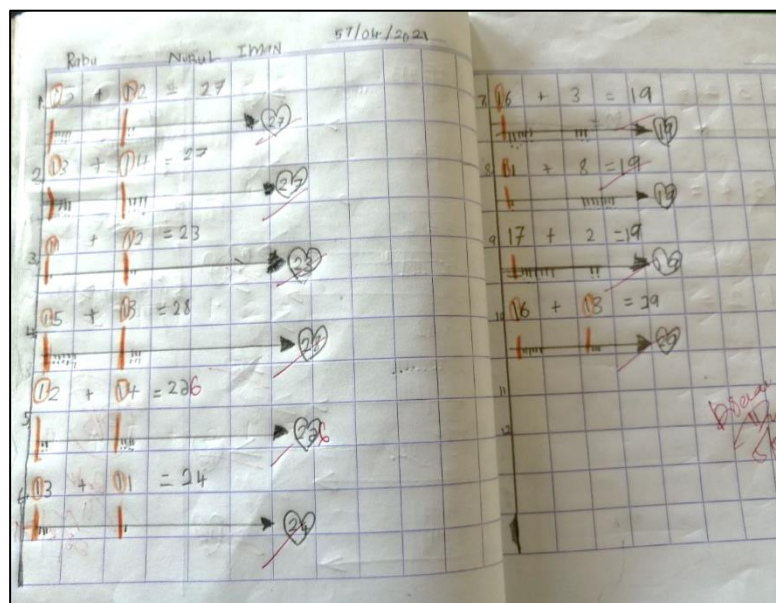 57/04/2021
Rabu NURUL IMAN
1. 15 + 12 = 27
27
2. 13 + 14 = 27
27
3. 11 + 12 = 23
23
4. 15 + 13 = 28
28
5. 12 + 14 = 226
6. 13 + 11 = 24
24
7. 16 + 3 = 19
19
8. 11 + 8 = 19
19
9. 17 + 2 = 19
19
10. 16 + 13 = 29
29
11
12